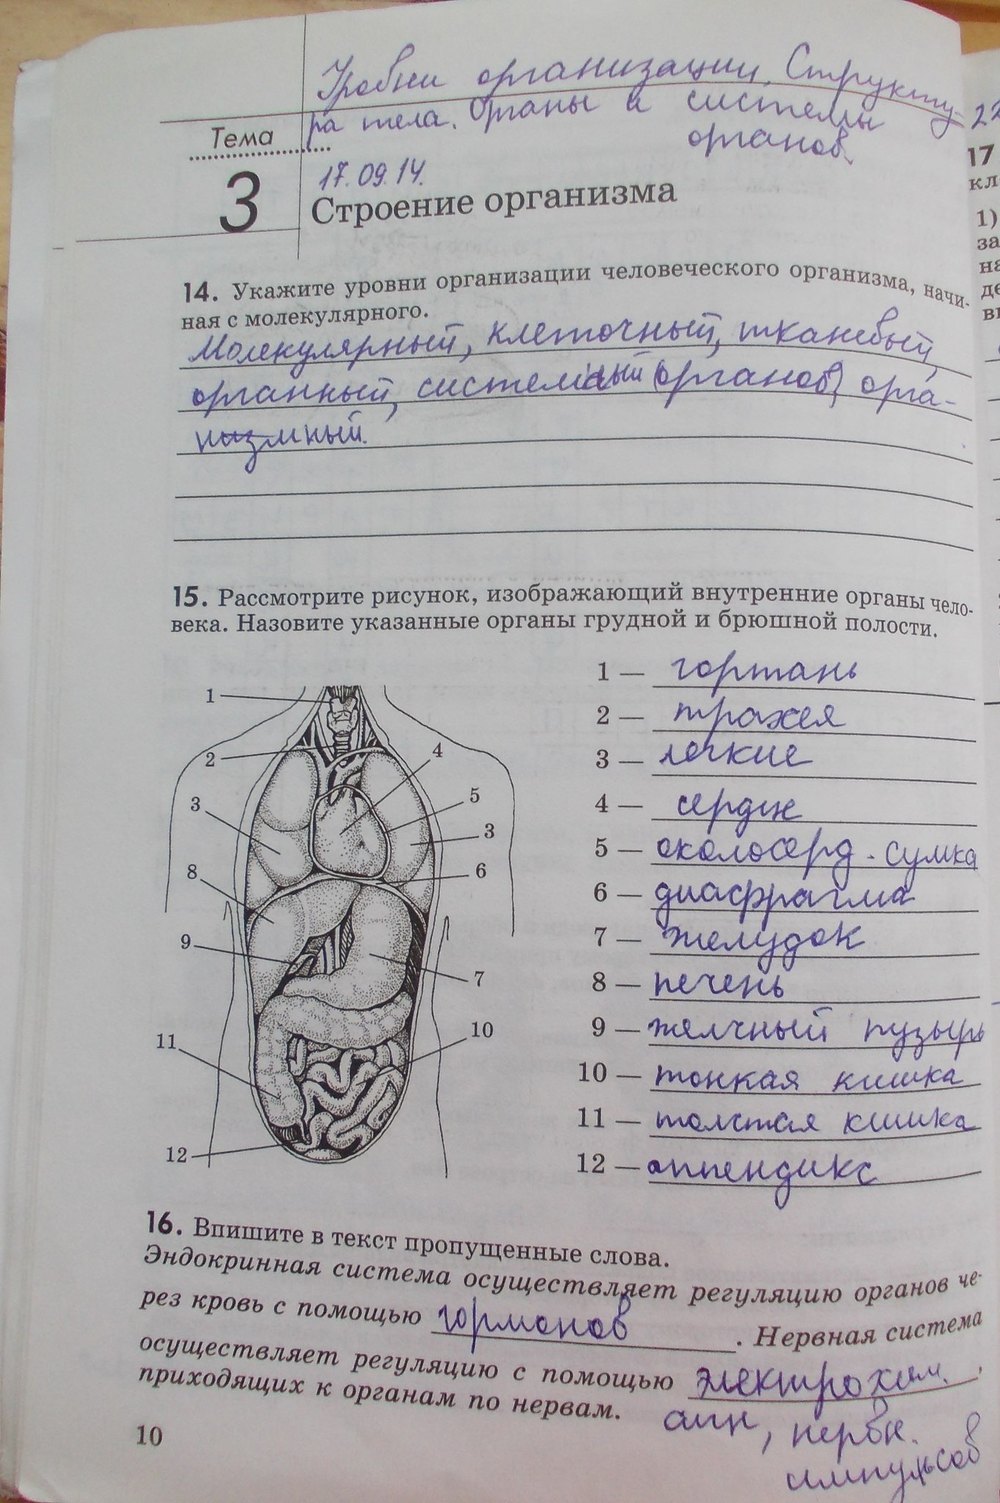 Уровни организации. Структу-
ра тела. Органы и системы
органов.
Тема
3
17.09.14.
Строение организма
14. Укажите уровни организации человеческого организма, начи-
ная с молекулярного.
Молекулярный, клеточный, тканевый,
органный, системный (органов), орга-
низмный.
15. Рассмотрите рисунок, изображающий внутренние органы чело-
века. Назовите указанные органы грудной и брюшной полости.
1 — гортань
2 — трахея
3 — легкие
4 — сердце
5 — околосерд. сумка
6 — диафрагма
7 — желудок
8 — печень
9 — желчный пузырь
10 — тонкая кишка
11 — толстая кишка
12 — аппендикс
1
2
3
4
5
3
6
8
9
7
10
11
12
16. Впишите в текст пропущенные слова.
Эндокринная система осуществляет регуляцию органов че-
рез кровь с помощью гормонов. Нервная система
осуществляет регуляцию с помощью электрохим.
приходящих к органам по нервам.
нервн.
импульсов
10
22
17
кл
1)
за
на
де
вы